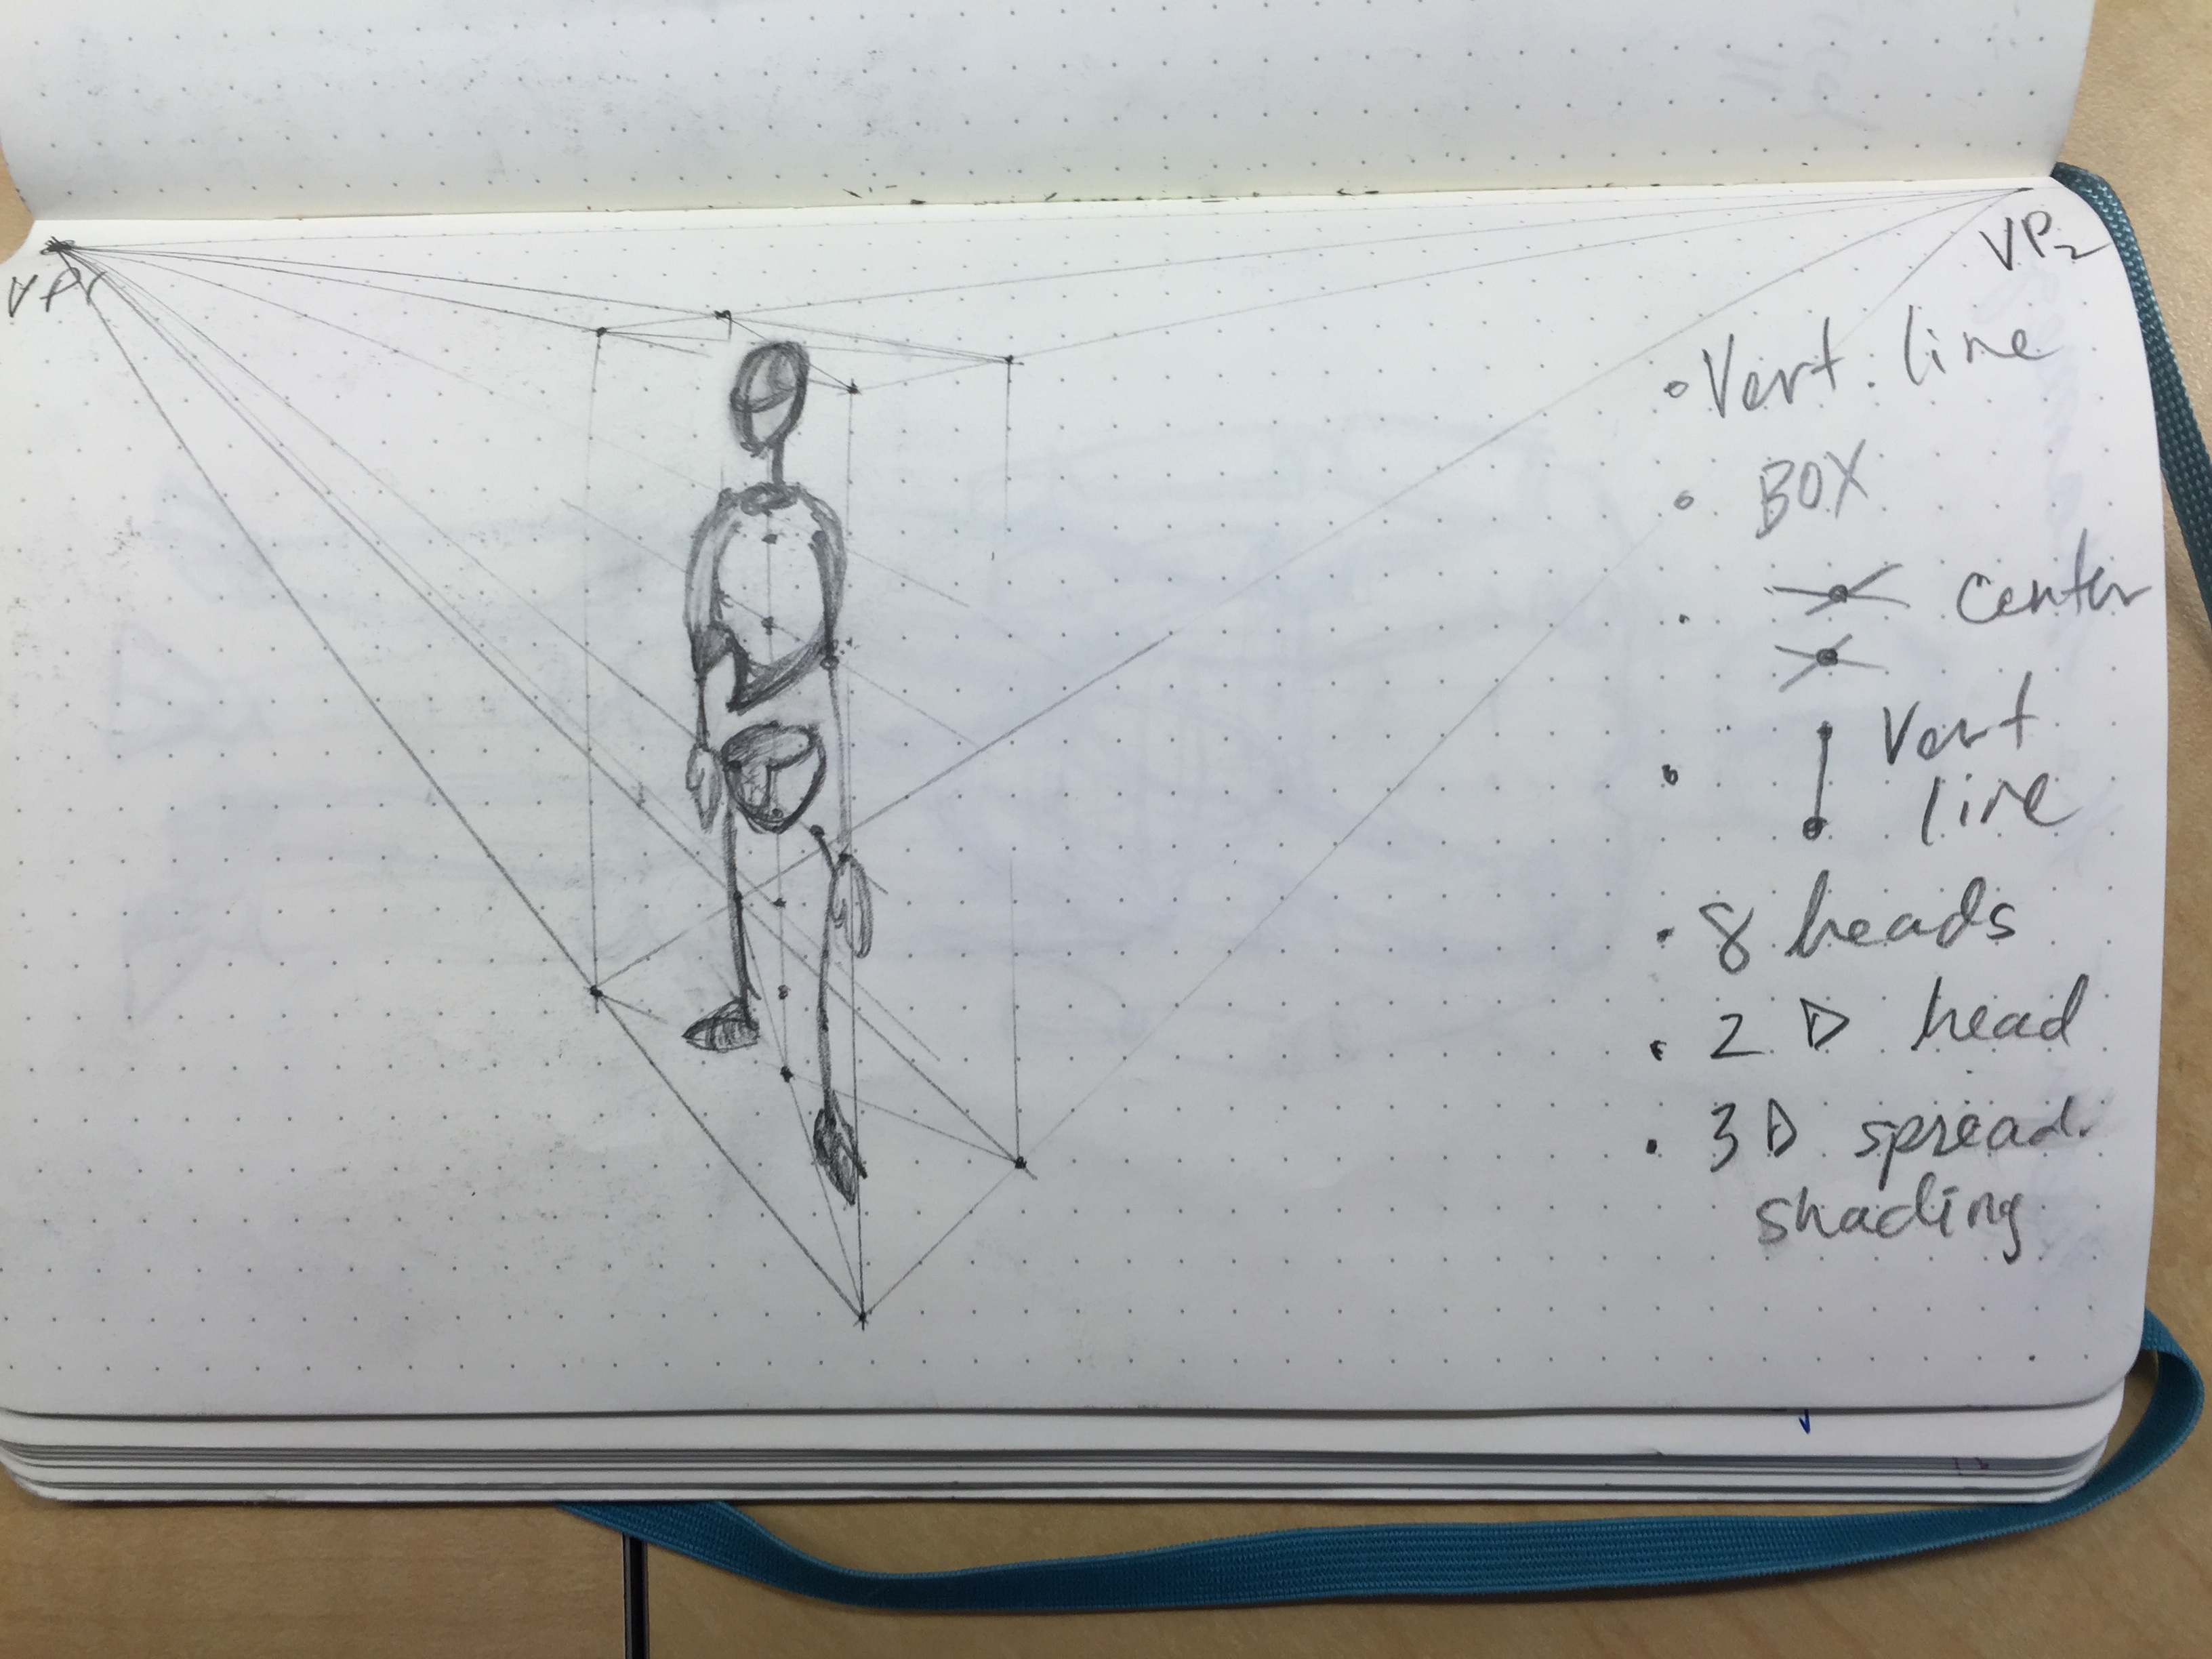 VP1
VP2
Vert. line
BOX
center
Vert
line
8 heads
2D head
3D spread
shading